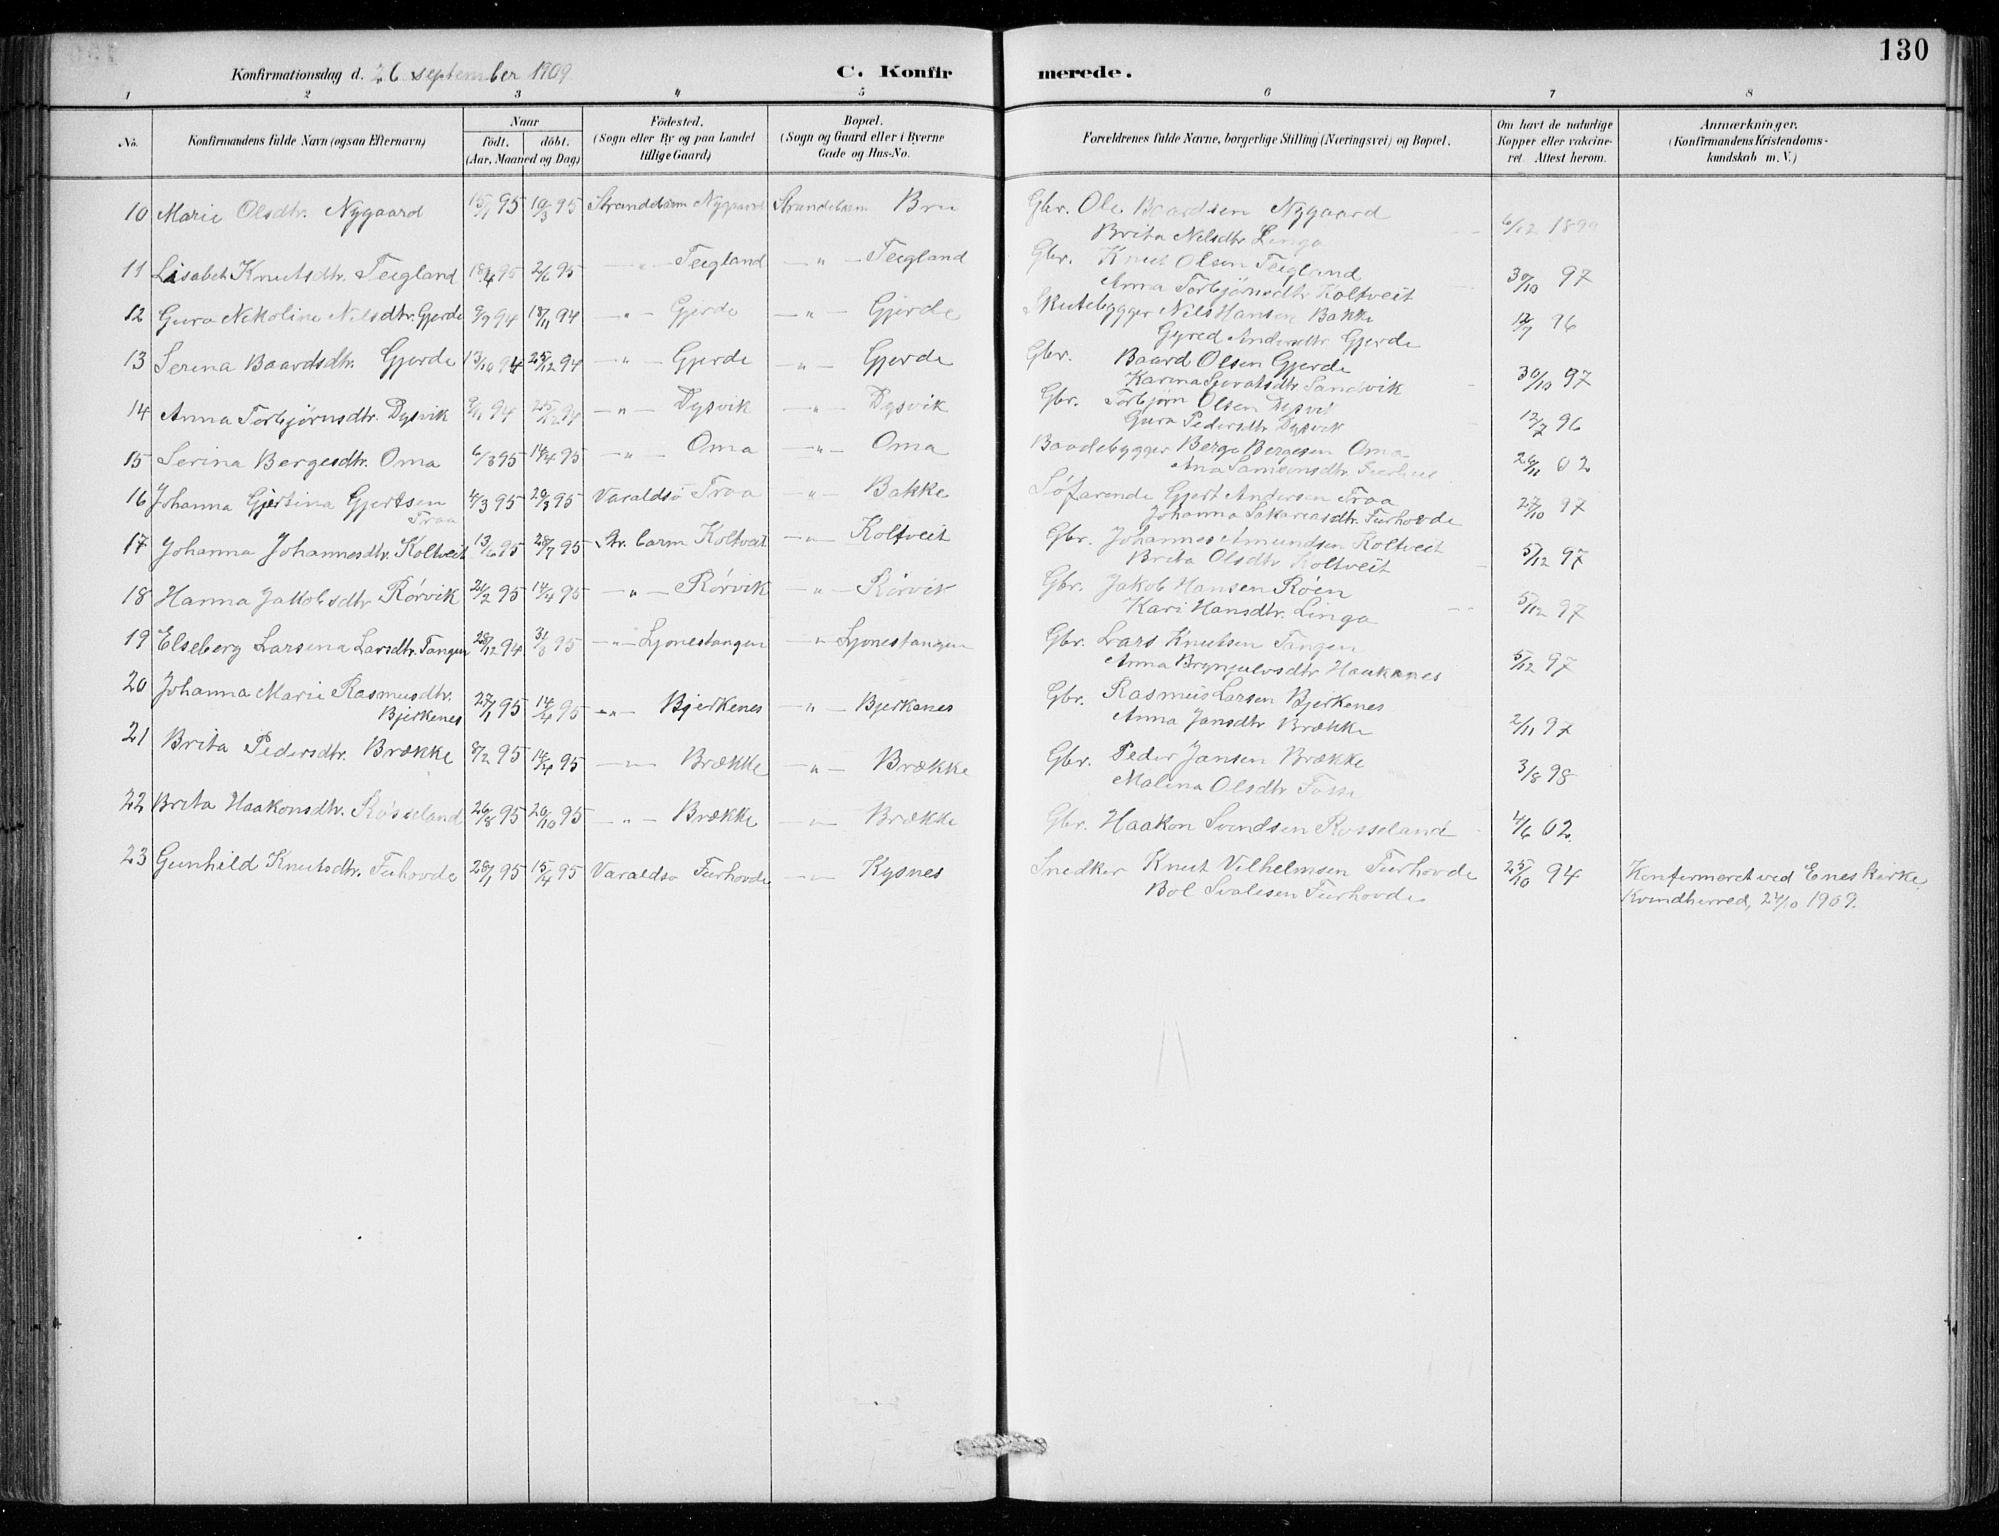 130
Konfirmationsdag d. 26 september 1909 C. Konfirmerede.
1 2 3 4 5 6 7 8
No. Konfirmandens fulde Navn (ogsaa Efternavn) Naar födt. döbt. (Aar, Maaned og Dag) Födested. (Sogn eller By og paa Landet tillige Gaard) Bopæl. (Sogn og Gaard eller i Byerne Gade og Hus-No. Forældrenes fulde Navne, borgerlige Stilling (Næringsvei) og Bopæl. Om havt de naturlige Kopper eller vakcineret. Attest herom. Anmærkninger. (Konfirmandens Kristendomskundskab m. V.)
10 Marie Olsdtr. Nygaard 15/1 95 10/3 95 Strandebarm Nygaard Strandebarm Bru Gbr. Ole Baardsen Nygaard 6/12
Brita Nelsdtr Linga
11 Lisabet Knutsdtr. Teigland 18/4 95 2/6 95 — " — Teigland — " — Teigland Gbr. Knut Olsen Teigland 30/10 97
Anna Torbjörnsdtr Koltveit
12 Gura Nikoline Nilsdtr. Gjerde 9/9 94 18/11 94 — " — Gjerde — " — Gjerde Skutebygger Nils Hansen Bakke 12/7 96
Gyred Andersdtr Gjerde
13 Serina Baardsdtr. Gjerde 13/10 94 25/12 94 — " — Gjerde — " — Gjerde Gbr. Baard Olsen Gjerde 30/10 97
Karina Sjovatsdtr Sandvik
14 Anna Torbjørnsdtr. Dysvik 9/11 94 25/12 94 — " — Dysvik — " — Dysvik Gbr. Torbjørn Olsen Dysvik 12/7 96
Gura Pedersdtr Dysvik
15 Serina Bergesdtr. Oma 6/3 95 14/4 95 — " — Oma — " — Oma Baadebygger Berge Bergesen Oma 26/11 02
Ana Samsonsdtr.
16 Johanna Gjertina Gjertsen Traa 4/3 95 29/3 95 Varaldsö Traa — " — Bakke Söfarende Gjert Andersen Traa 27/10 97
Johanna Sakariasdtr. Furhovde
17 Johanna Johannesdtr. Koltveit 13/6 95 28/7 95 Str. barm Koltveit — " — Koltveit Gbr. Johannes Amundsen Koltveit 5/12 97
Brita Olsdtr Koltveit
18 Hanna Jakobsdtr Rörvik 24/2 95 14/4 95 — " — Rörvik — " — Rörvik Gbr. Jakob Hansen Röen 5/12 97
Kari Hansdtr. Linga
19 Elseberg Larsina Larsdtr. Tangen 28/12 94 31/3 95 — " — Ljonestangen — " — Ljonestangen Gbr. Lars Knutsen Tangen 5/12 97
Anna Brynjulvsdtr Haukanes
20 Johanna Marie Rasmusdtr. Bjerkenes 27/1 95 14/4 95 — " — Bjerkenes — " — Bjerkenes Gbr. Rasmus Larsen Bjerkenes 2/11 97
Anna Jansdtr Brække
21 Brita Pedersdtr. Brække 8/2 95 14/4 95 — " — Brække — " — Brække Gbr. Peder Jansen Brække 3/8 98
Malina Olsdtr Fosse
22 Brita Haakonsdtr. Rosseland 26/8 95 20/10 95 — " — Brække — " — Brække Gbr. Haakon Svendsen Rosseland 4/6 02
23 Gunhild Knutsdtr. Fuhovde 28/1 95 15/4 95 Varaldsö Furhovde — " — Kysnes Snedker Knut Vilhelmsen Furhovde 25/10 94 Konfirmeret ved Enes kirke,
Bol Svalesen Furhovde Kvindherred, 24/10 1909.